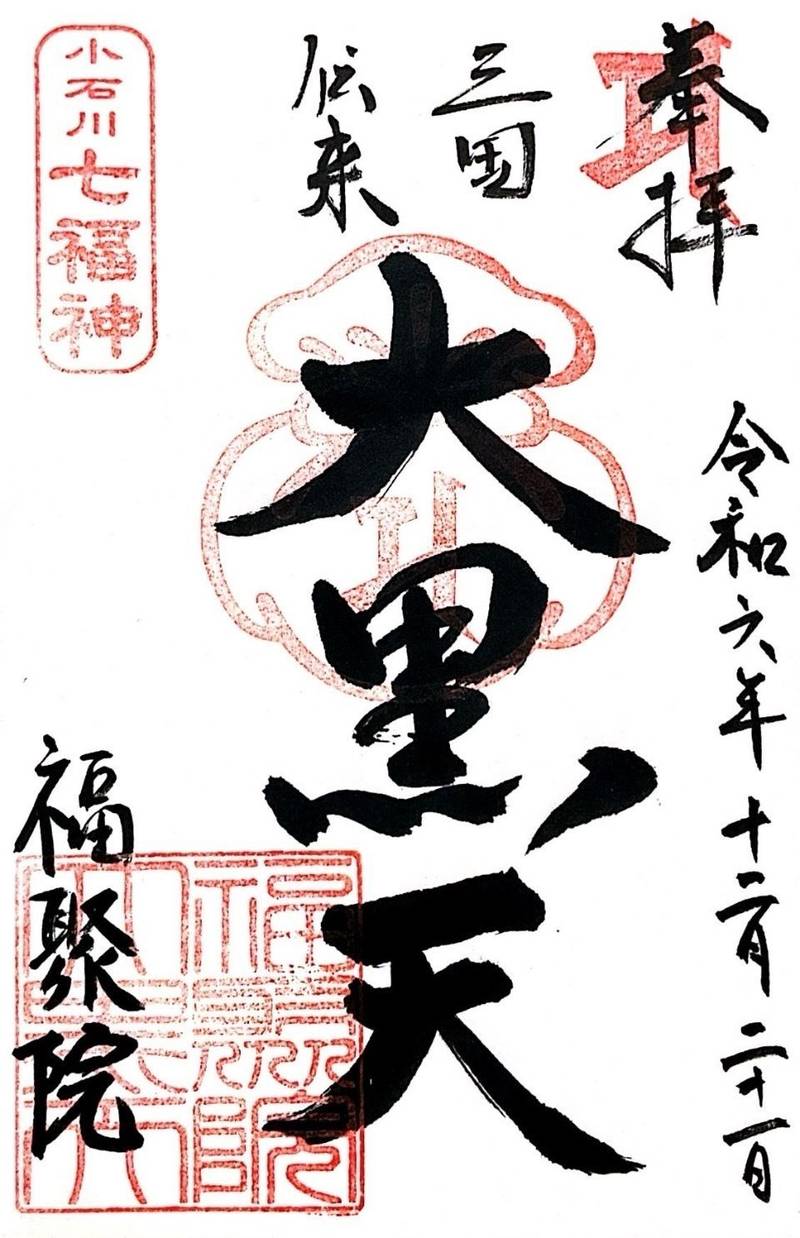 奉拝
令和六年十二月二十一日
三国
伝来
大黒天
小石川七福神
福聚院
福聚院
大黒天